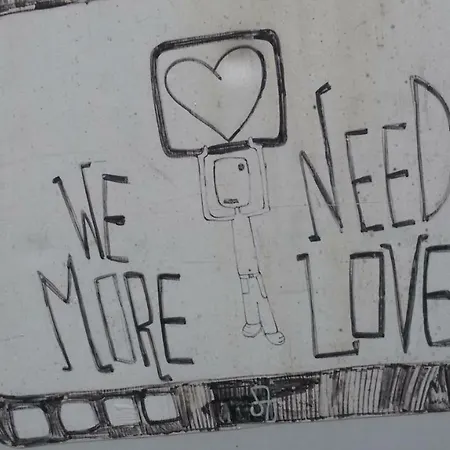 WE NEED
MORE LOVE